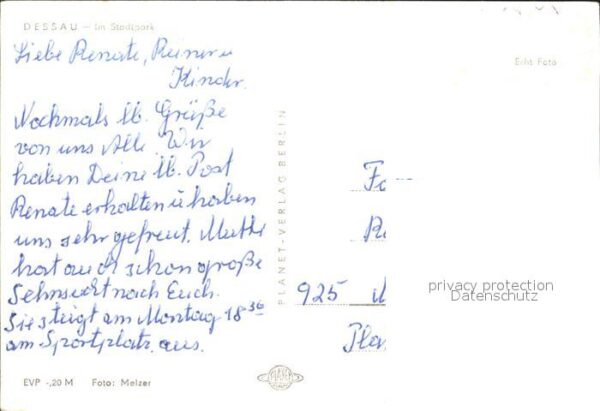 DESSAU — Im Stadtpark
Liebe Renate, Reiner u
Kinder.
Nochmals lb. Grüße
von uns Alle. Wir
haben Deine lb. Post
Renate erhalten u haben
uns sehr gefreut. Mutti
hat auch schon große
Sehnsucht nach Euch.
Sie steigt am Montag 18 36
am Sportplatz aus.
EVP -,20 M Foto: Melzer
PLANET-VERLAG BERLIN
PLANET
Echt Foto
Fa
Re
925
Pla
privacy protection
Datenschutz